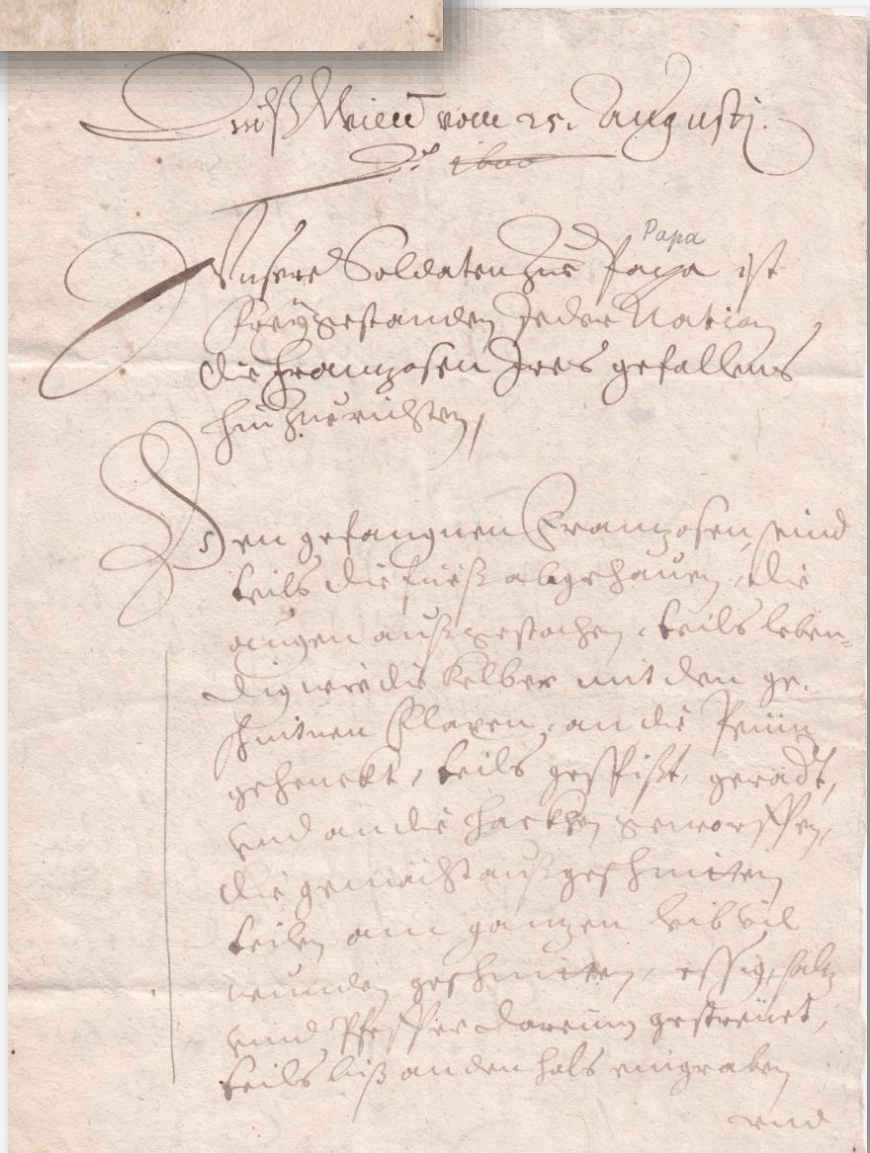 Auß Wienn vom 25. Augusti.
Aº 1600
Papa
Unsere Soldaten zue Papa ist
freygestanden Jeder Nation
die Franzosen Jres gefallens
hinzurichten,
Den gefangnen Franzosen, seind
teils die füeß abgehauen, die
augen außgestochen, teils leben=
dig wie die Kelber mit den ge-
schnitnen Flaxen, an die
gehenckt, teils gespißt, geradt,
vnd an die hacken geworffen,
die gemächt außgeschniten
teilen am ganzen leib vil
wunden geschniten, essig, saltz
vnnd Pfeffer dareinn gestreuet,
teils biß an den hals eingraben
vnd